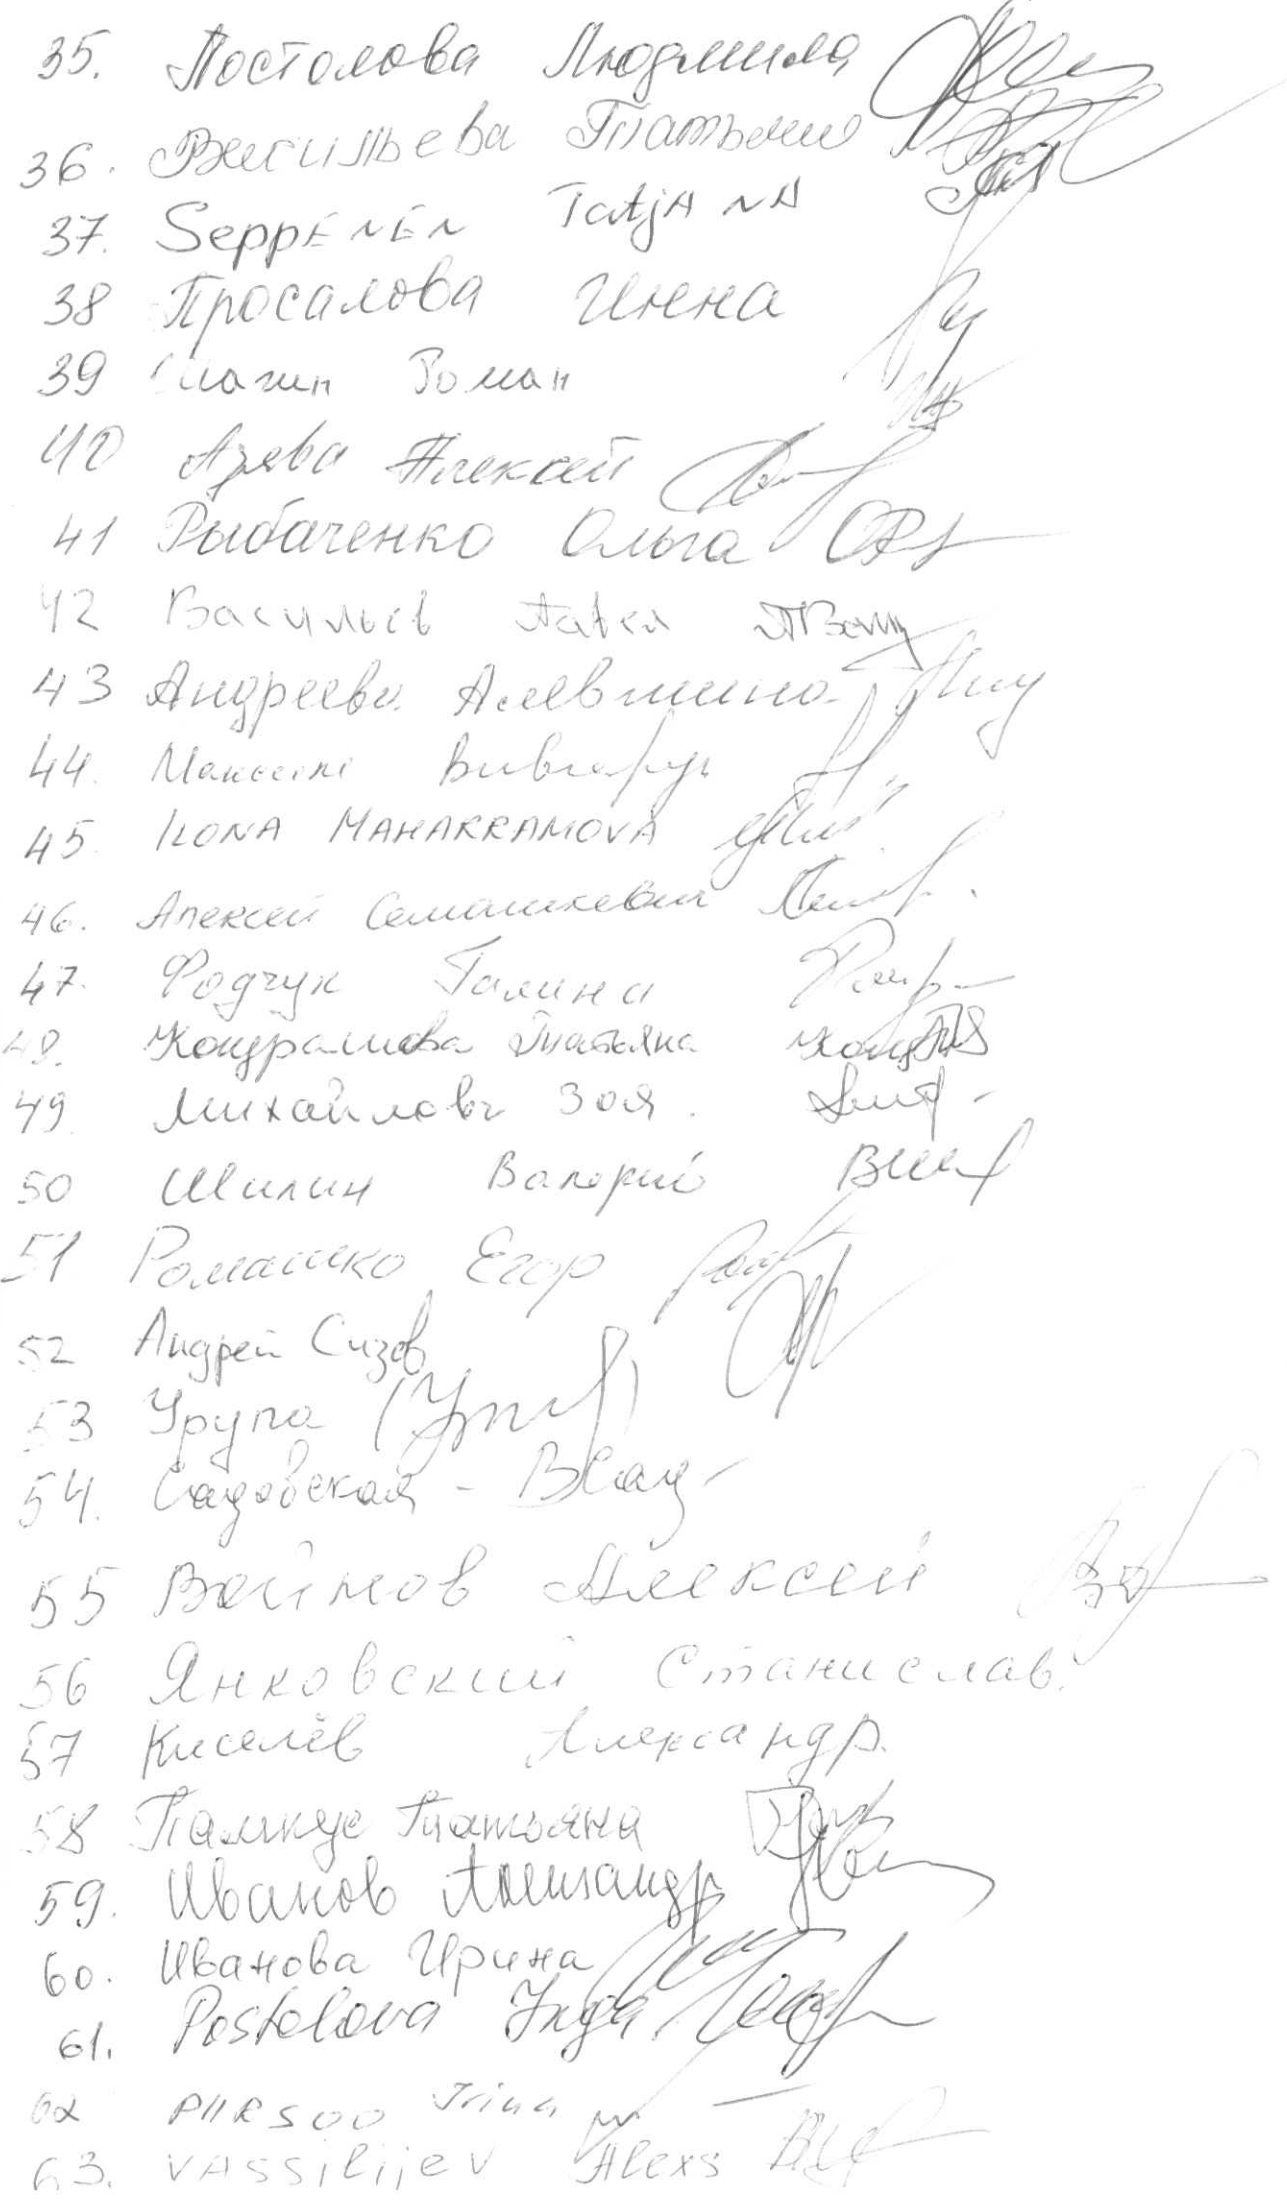 35. Постолова Людмила
36. Васильева Татьяна
37. SeppENEN TatjANA
38 Просалова Инна
39 Роман
40 Алексей
41 Рыбаченко Ольга
42 Васильев Павел
43 Андреева Алевтина
44.
45. ILONA MAHARRAMOVA
46. Алексей Семашкевич
47. Фодчук Галина
48. Кондрашова Татьяна
49. Михайлова Зоя.
50 Шилин Валерий
51 Ромашко Егор
52 Андрей Сизов
53 Урупа
54. Садовская -
55 Войнов Алексей
56 Янковский Станислав.
57 Киселёв Александр.
58 Татьяна
59. Иванов Александр
60. Иванова Ирина
61. Postolova Inga
62 PIIRSOO Irina
63. VASSilijeV Alexs